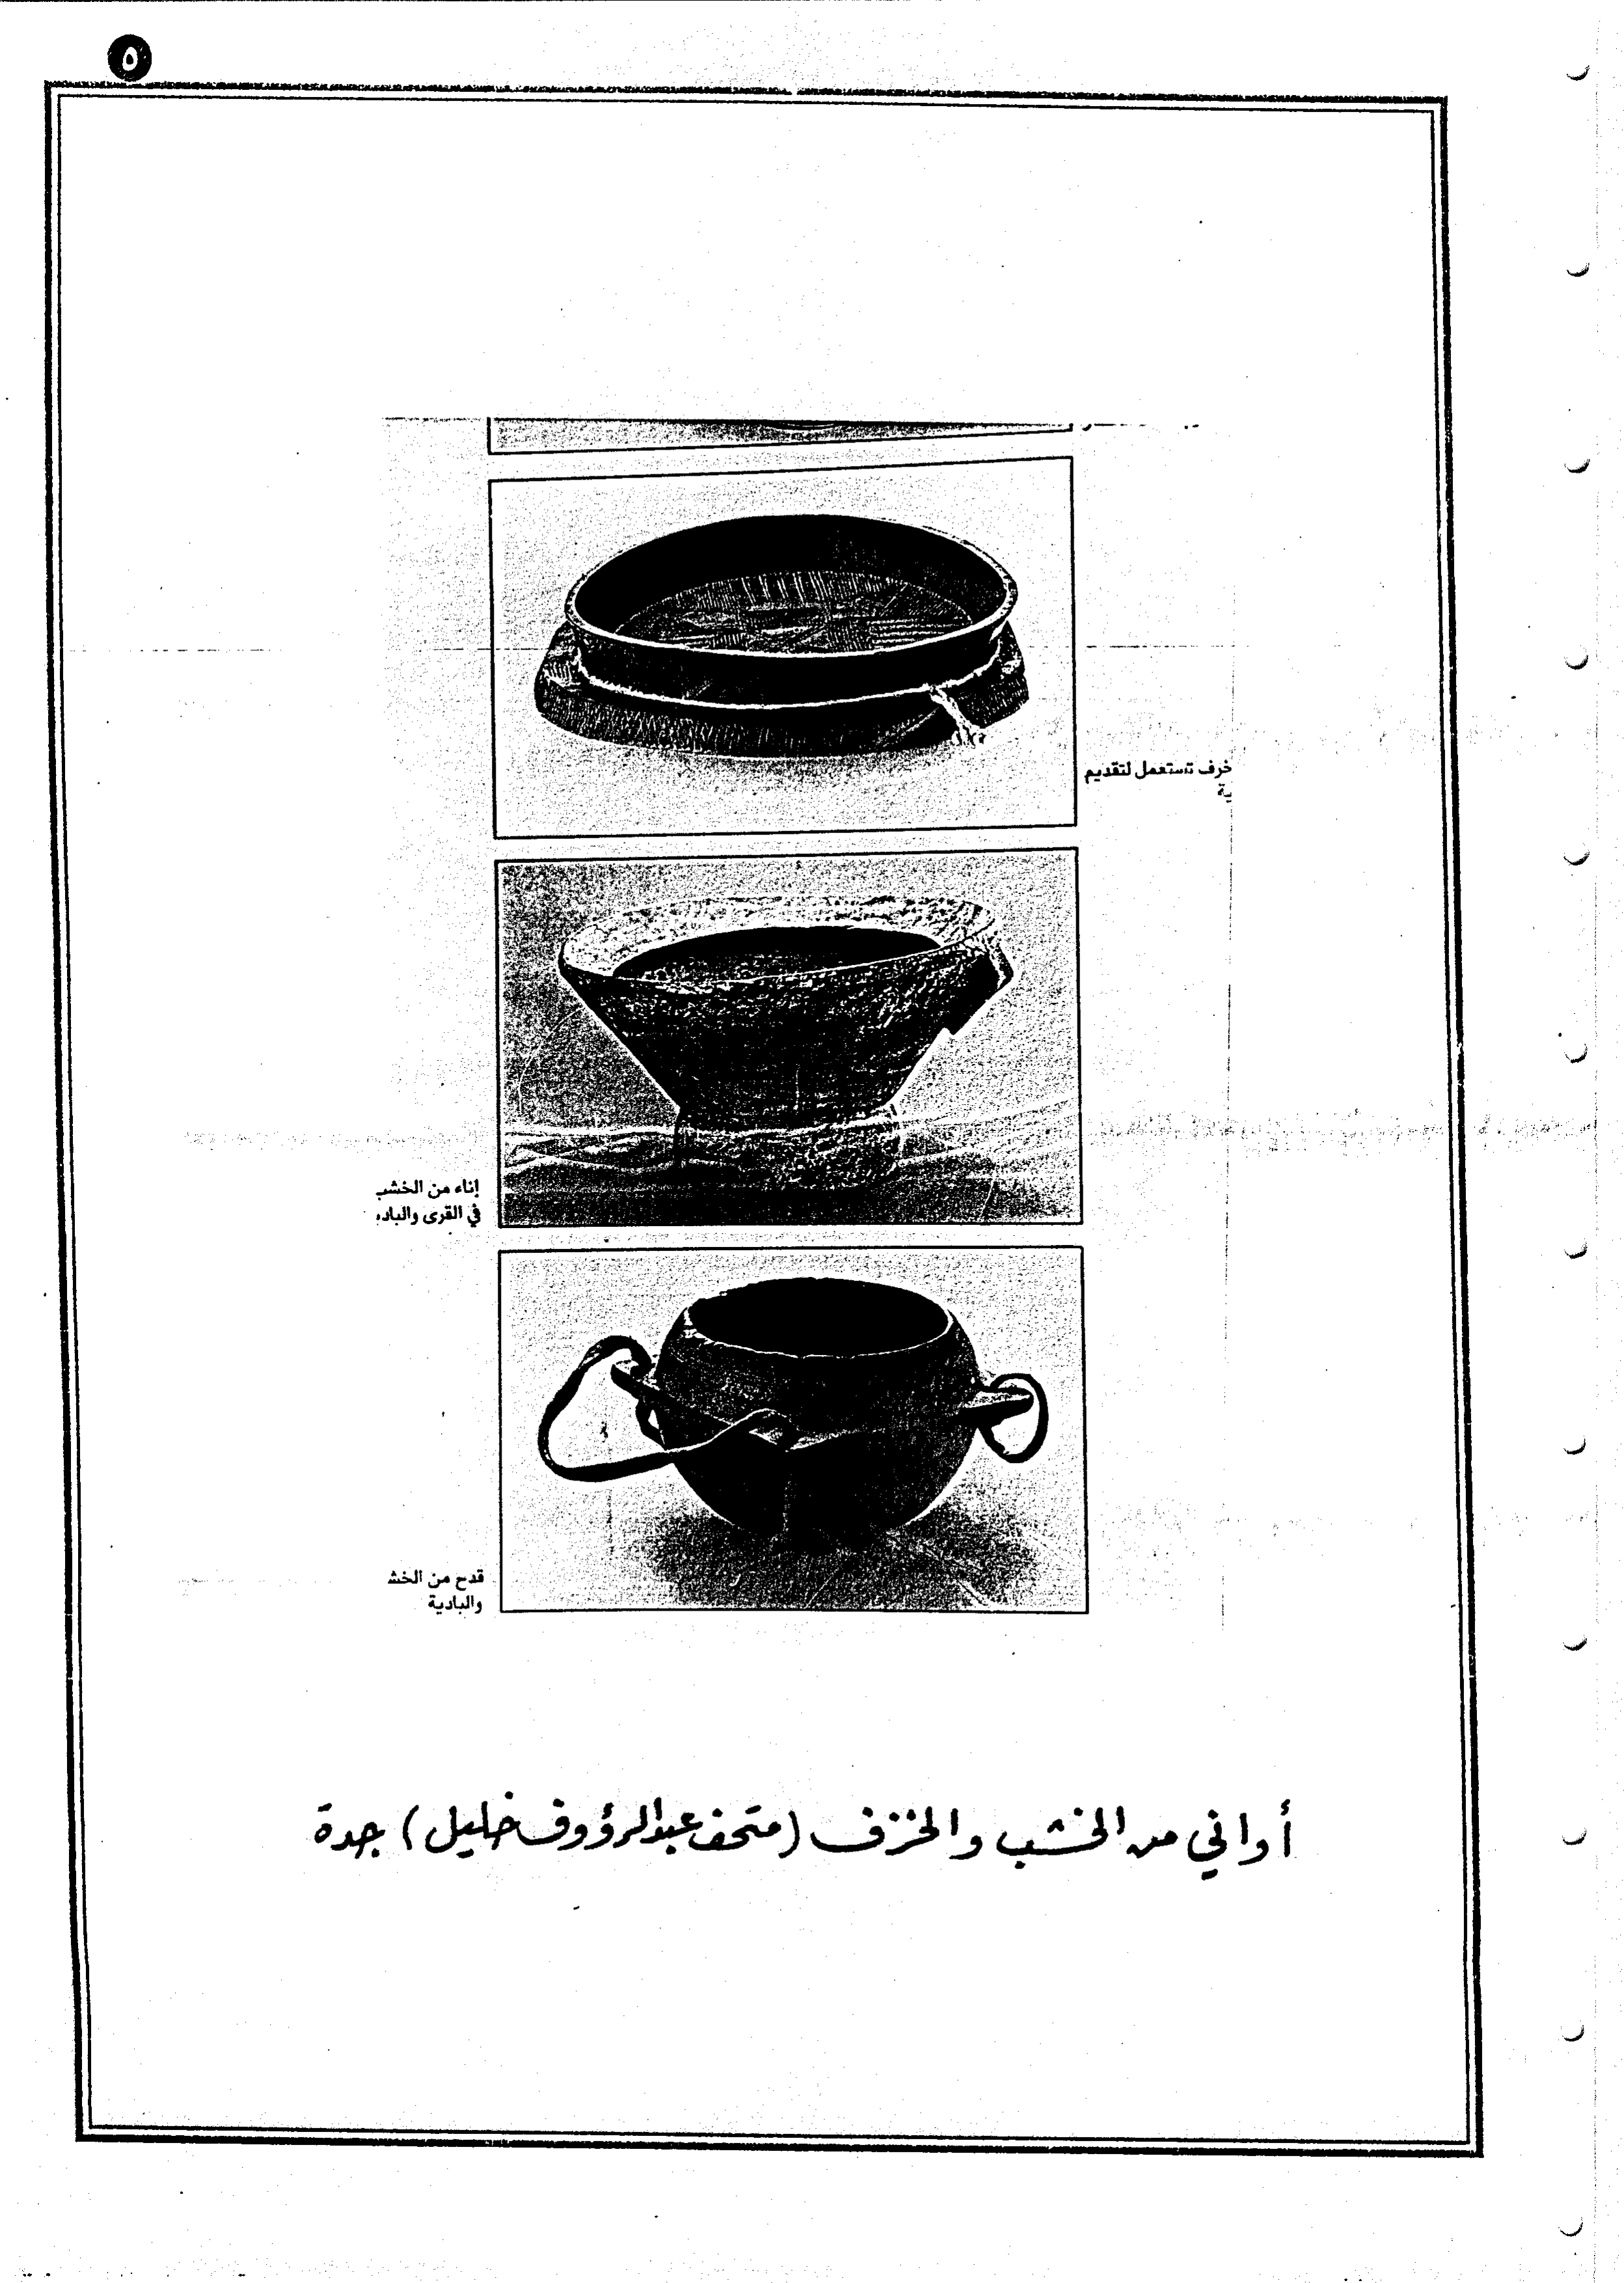 ٥
خرف تستعمل لتقديم
ية
إناء من الخشب
في القرى والباد
قدح من الخشـ
والبادية
أواني من الخشب والخزف (متحف عبدالرؤوف خليل) جدة